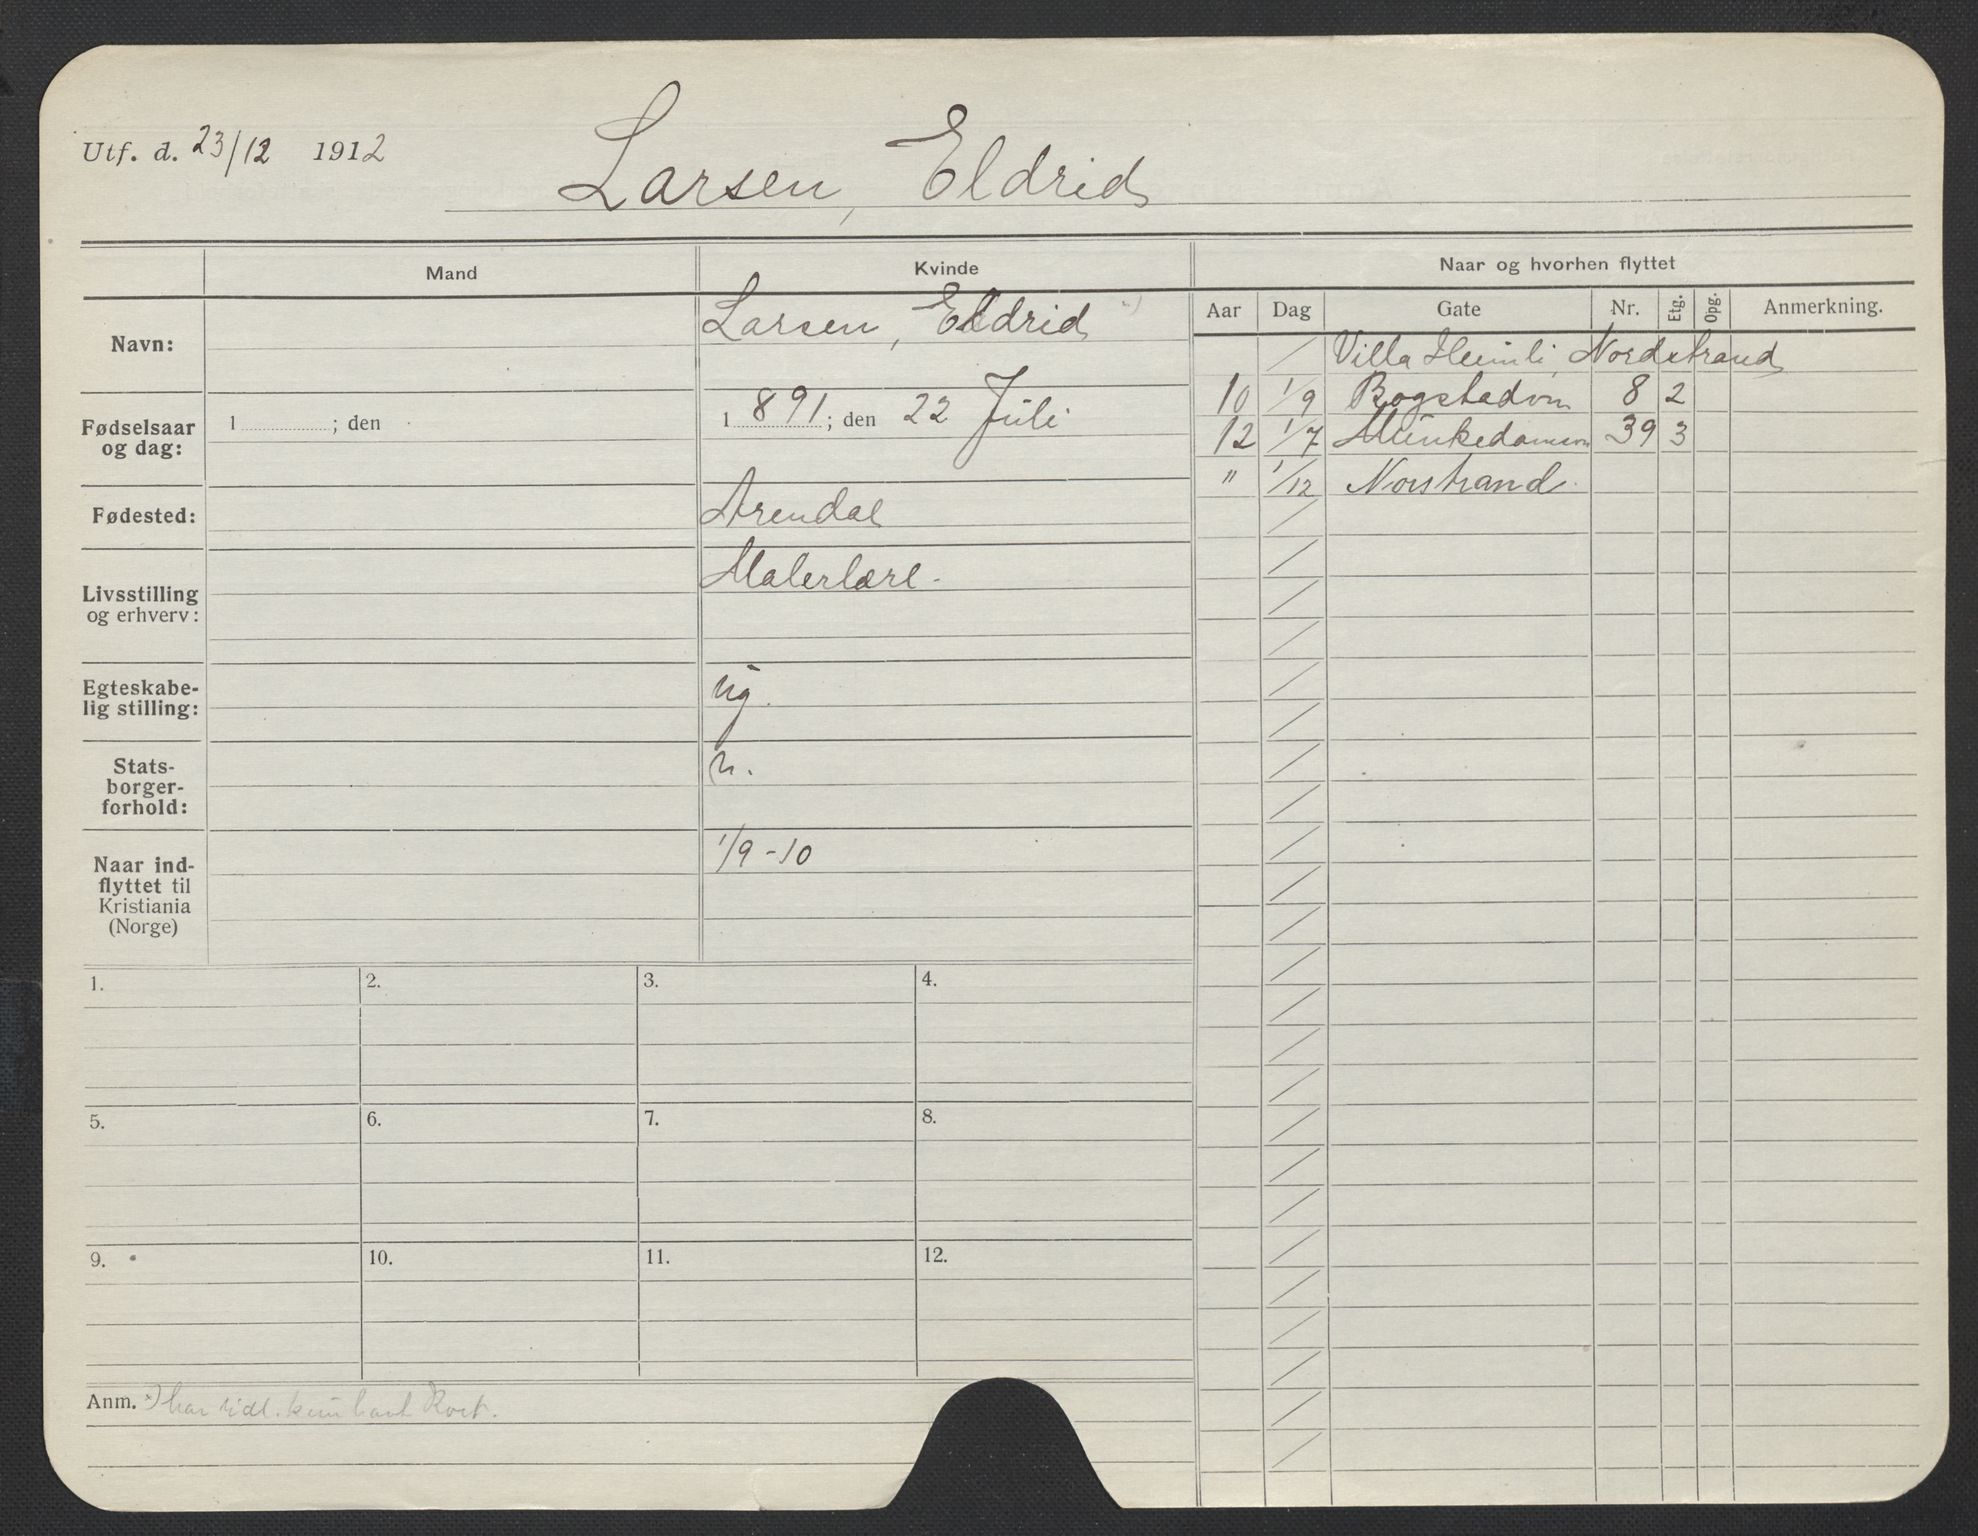 Utf. d. 23/12 1912
Larsen, Eldrid
Mand Kvinde Naar og hvorhen flyttet
Aar Dag Gate Nr. Etg. Opg. Anmerkning.
Navn: Larsen, Eldrid x)
Villa Heimli, Nordstrand
10 1/9 Bogstadvn 8 2
12 1/7 Munkedamsvn 39 3
" 1/12 Norstrand.
Fødselsaar
og dag:
1 ; den 1 891; den 22 Juli
Fødested: Arendal
Livsstilling
og erhverv:
Malerlære.
Egteskabe-
lig stilling:
ug.
Stats-
borger-
forhold:
n.
Naar ind-
flyttet til
Kristiania
(Norge)
1/9-10
1. 2. 3. 4.
5. 6. 7. 8.
9. 10. 11. 12.
Anm. x) har tidl. kun havt Kort.